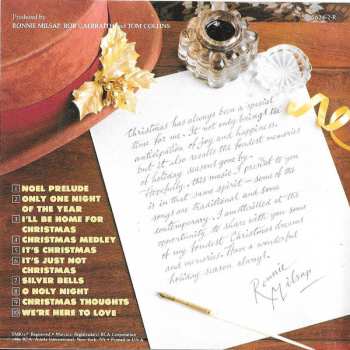 Produced by
RONNIE MILSAP, ROB GALBRAITH and TOM COLLINS
5624-2-R
Christmas has always been a special
time for me. It not only brings the
anticipation of joy and happiness,
but it also recalls the fondest memories
of holiday seasons gone by.
Hopefully, this music I present to you
is in that same spirit - some of the
songs are traditional and some
contemporary. I am thrilled at the
opportunity to share with you some
of my fondest Christmas dreams
and memories. Have a wonderful
holiday season always!
Ronnie
Milsap
1 NOEL PRELUDE
2 ONLY ONE NIGHT
OF THE YEAR
3 I'LL BE HOME FOR
CHRISTMAS
4 CHRISTMAS MEDLEY
5 IT'S CHRISTMAS
6 IT'S JUST NOT
CHRISTMAS
7 SILVER BELLS
8 O HOLY NIGHT
9 CHRISTMAS THOUGHTS
10 WE'RE HERE TO LOVE
TMK(s) ® Registered • Marca(s) Registrada(s) RCA Corporation
1986 RCA/Ariola International, New York, NY • Printed in U.S.A.